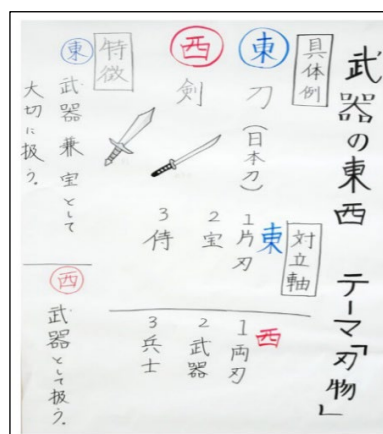 武器の東西 テーマ「刃物」
具体例
東 刀(日本刀)
西 剣
対立軸
東
1片刃
2宝
3侍
西
1両刃
2武器
3兵士
特徴
東 武器兼宝として
大切に扱う。
西 武器として扱う。